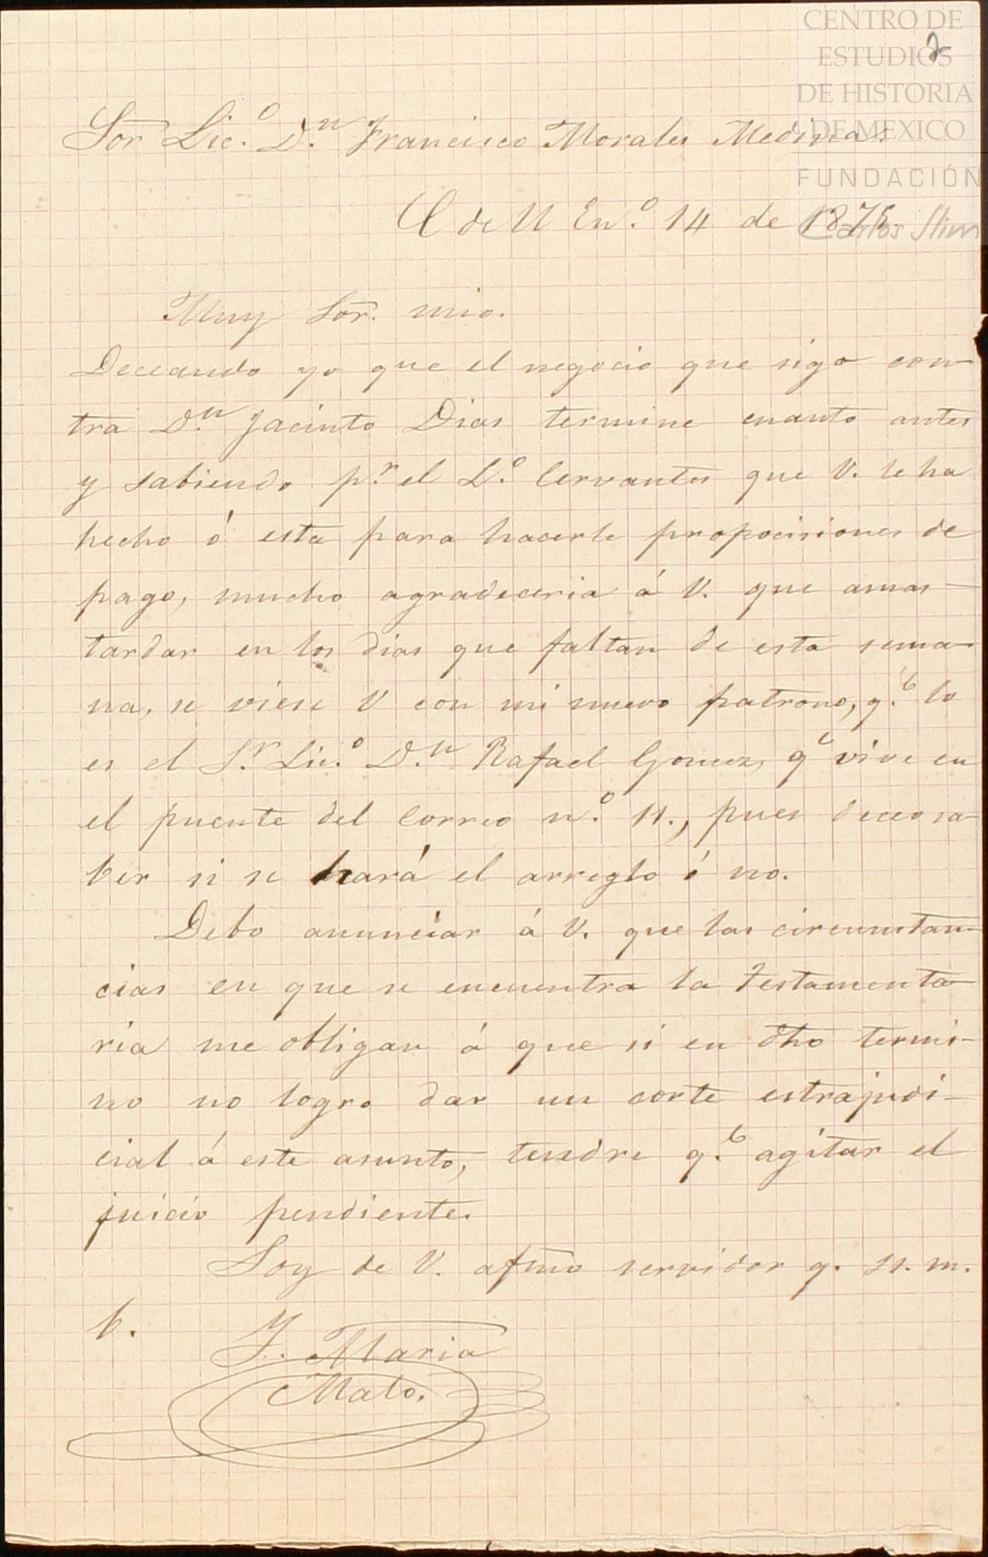 CENTRO DE
ESTUDIOS
DE HISTORIA
DE MEXICO
FUNDACIÓN
Carlos Slim
2
Sor Lic.º D.n Francisco Morales Medina.
C de U En.º 14 de 1875.
Muy Sor. mio.
Deceando yo que el negocio que sigo con-
tra D.n Jacinto Dias termine cuanto antes
y sabiendo p.r el L.º Cervantes que V. le ha
hecho ó esta para hacerle propocisiones de
pago, mucho agradeceria á V. que amas-
tardar en los dias que faltan de esta sema-
na, se viese V con mi nuevo patrono, q.e lo
es el S.r Lic.º D.n Rafael Gomez, q.e vive en
el puente del Correo n.º 11., pues deceo sa-
ber si se hará el arreglo ó no.
Debo anunciar á V. que las circunstan-
cias en que se encuentra la Testamenta-
ria me obligan á que si en dho termi-
no no logro dar un corte estrajudi-
cial á este asunto, tendre q.e agitar el
juicio pendiente.
Soy de V. afmo servidor q. ss. m.
b.
J. Maria
Malo.